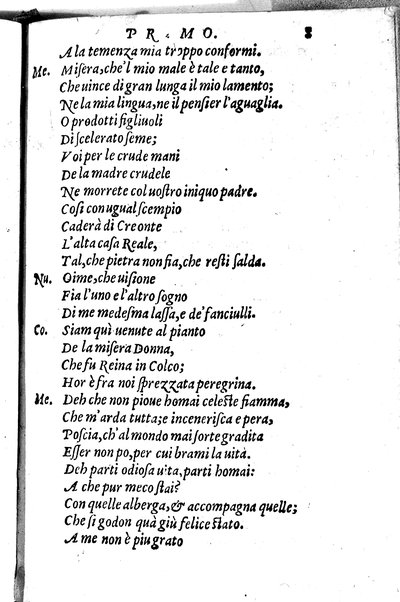 PRIMO. 8
A la temenza mia troppo conformi.
Me. Misera, che'l mio male è tale e tanto,
Che uince di gran lunga il mio lamento;
Ne la mia lingua, ne il pensier l'aguaglia.
O prodotti figliuoli
Di scelerato seme;
Voi per le crude mani
De la madre crudele
Ne morrete col uostro iniquo padre.
Cosi con ugual scempio
Caderà di Creonte
L'alta casa Reale,
Tal, che pietra non fia, che resti salda.
Nu. Oime, che uisione
Fia l'uno e l'altro sogno
Di me medesma lassa, e de' fanciulli.
Co. Siam quì uenute al pianto
De la misera Donna,
Che fu Reina in Colco;
Hor è fra noi sprezzata peregrina.
Me. Deh che non pioue homai celeste fiamma,
Che m'arda tutta; e incenerisca e pera,
Poscia, ch'al mondo mai sorte gradita
Esser non po, per cui brami la uità.
Deh parti odiosa uita, parti homai:
A che pur meco stai?
Con quelle alberga, & accompagna quelle;
Che si godon quà giù felice stato.
A me non è piu grato